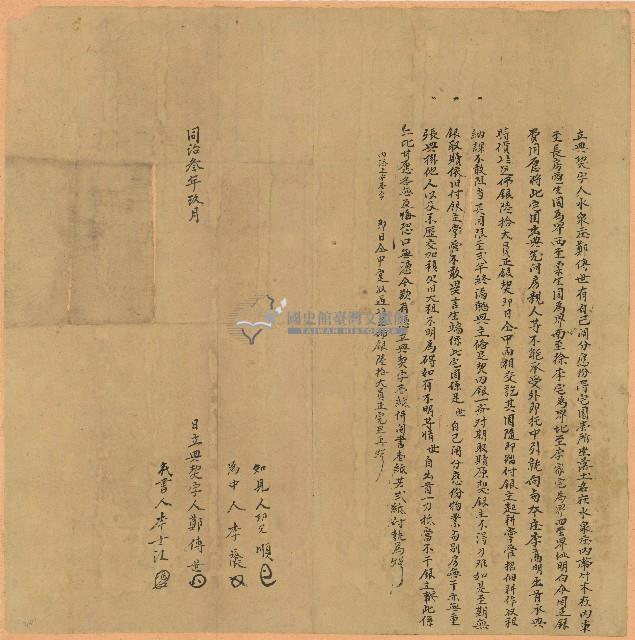 立典契字人水泉庄鄭傳世有自己鬮分應份得宅園壹所坐落土名在水泉庄內帶竹木在內東
至長房  園為界西至  園為界南至徐李宅為界北至李家宅為界四至界址明白今因乏銀
費用愿將此宅園出典先問房親人等不能承受外即托中引就向與本庄李高明出首承典
時價  佛銀陸拾大員正銀契即日仝中兩相交訖其園隨即踏付銀主起耕掌管招佃耕作收租
納課不敢阻當其園限至弍年終滿聽典主備足契內銀一齊對期取贖原契銀主不得刁難如是至期無
銀取贖依旧付銀主掌管不敢異言生端保此宅園係是世自己鬮分應份物業與別房無干亦無重
張典掛他人以及來歷交加積欠  大租不明為碍如有不明等情世自出首一力抵當不干銀主之事此係
仁此甘愿各無反悔恐口無憑今欲有憑立典契字壹紙併鬮書壹紙共弍紙付執為炤
    即日仝中實收過  佛銀陸拾大員正完足再炤
同治叁年玖月 日立典契字人鄭傳世
知見人  順
為中人李
代書人李士
國史館臺灣文獻館
TAIWAN HISTORICA